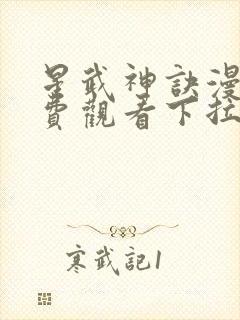 星武神訣漫
費觀看下拉
寒武記1